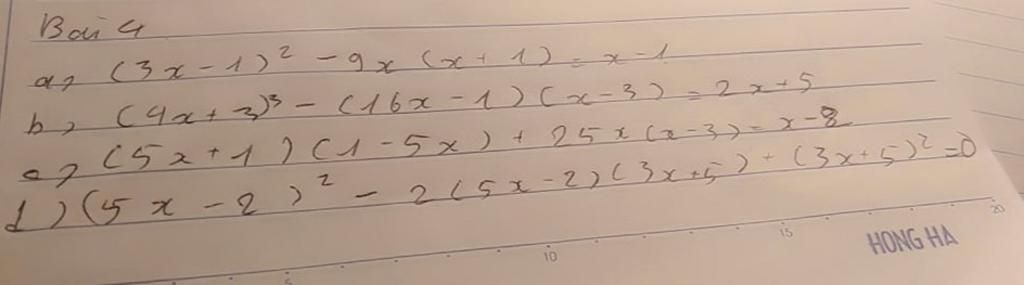 Bài 4
a, (3x-1)² - 9x(x+1) = x-1
b, (4x+3)³ - (16x-1)(x-3) = 2x+5
c, (5x+1)(1-5x) + 25x(x-3) = x-8
d) (5x-2)² - 2(5x-2)(3x+5) + (3x+5)² = 0
5 10 15 20
HONG HA